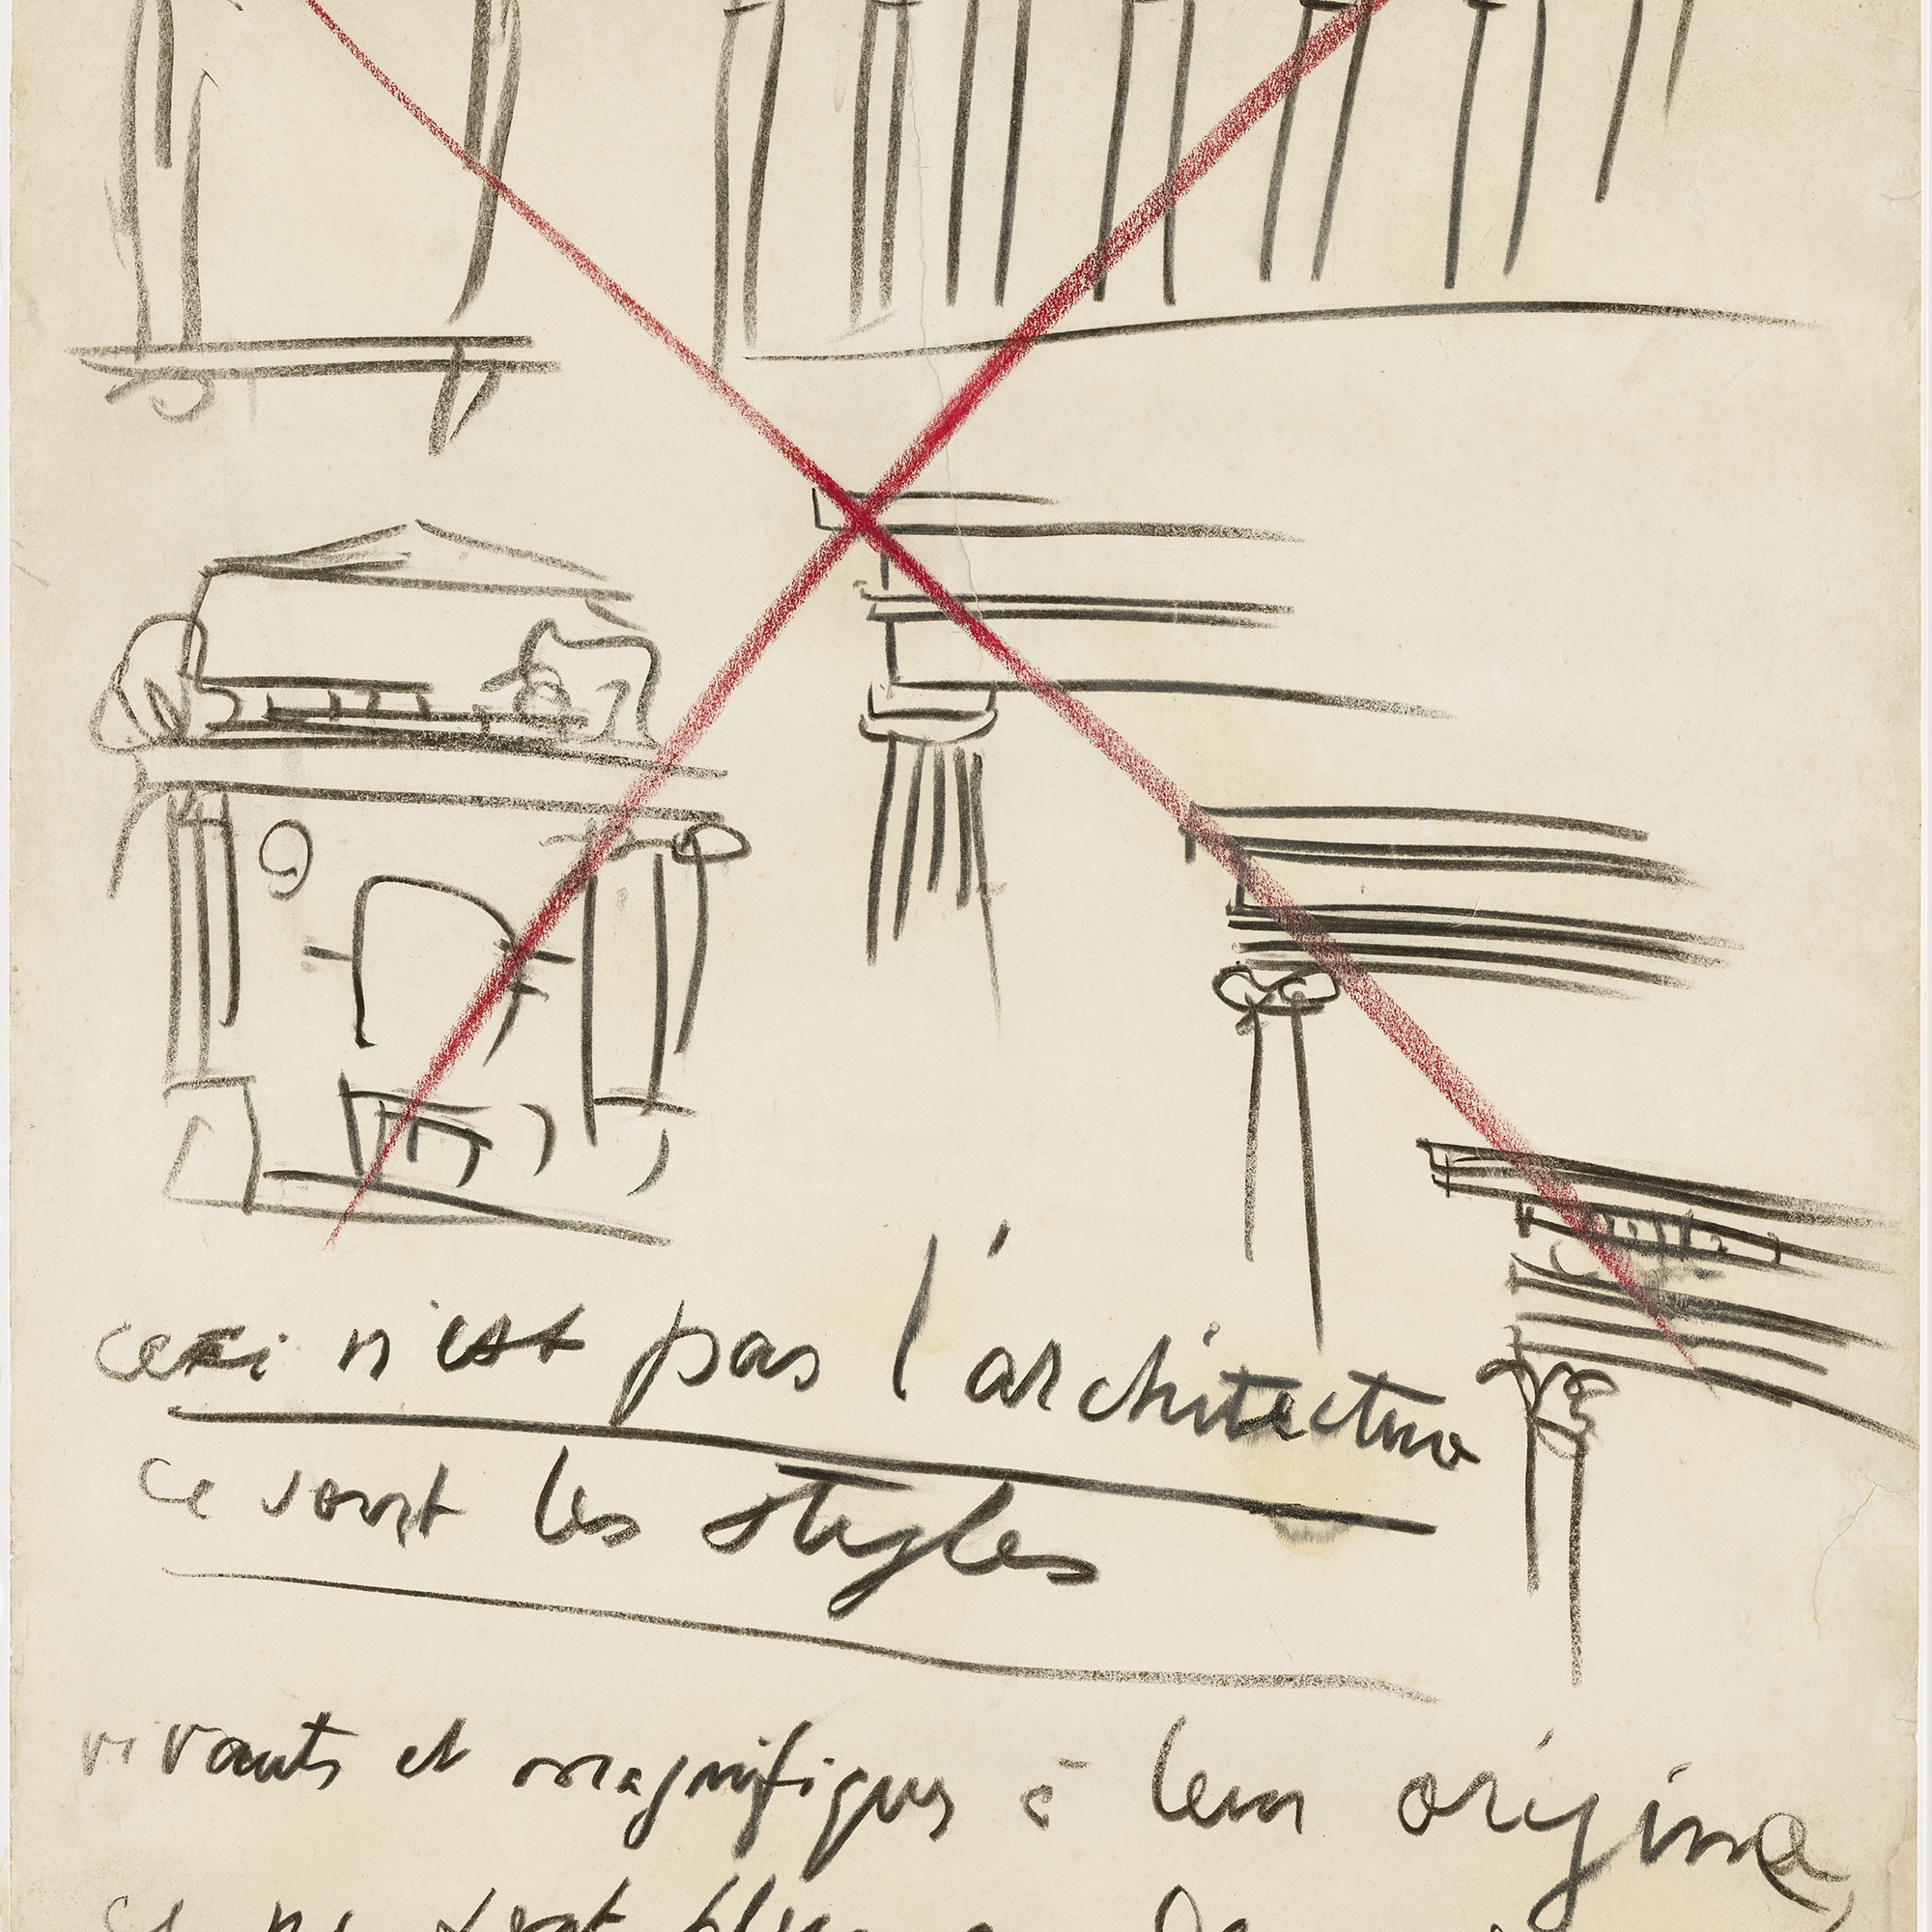 ceci n'est pas l'architecture
ce sont les styles
vivants et magnifiques à leur origine,
ce ne sont plus